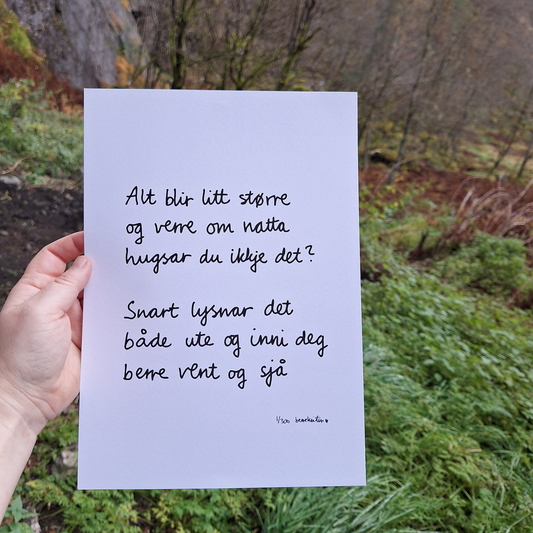 Alt blir litt større
og verre om natta
hugsar du ikkje det?
Snart lysnar det
både ute og inni deg
berre vent og sjå
1/300